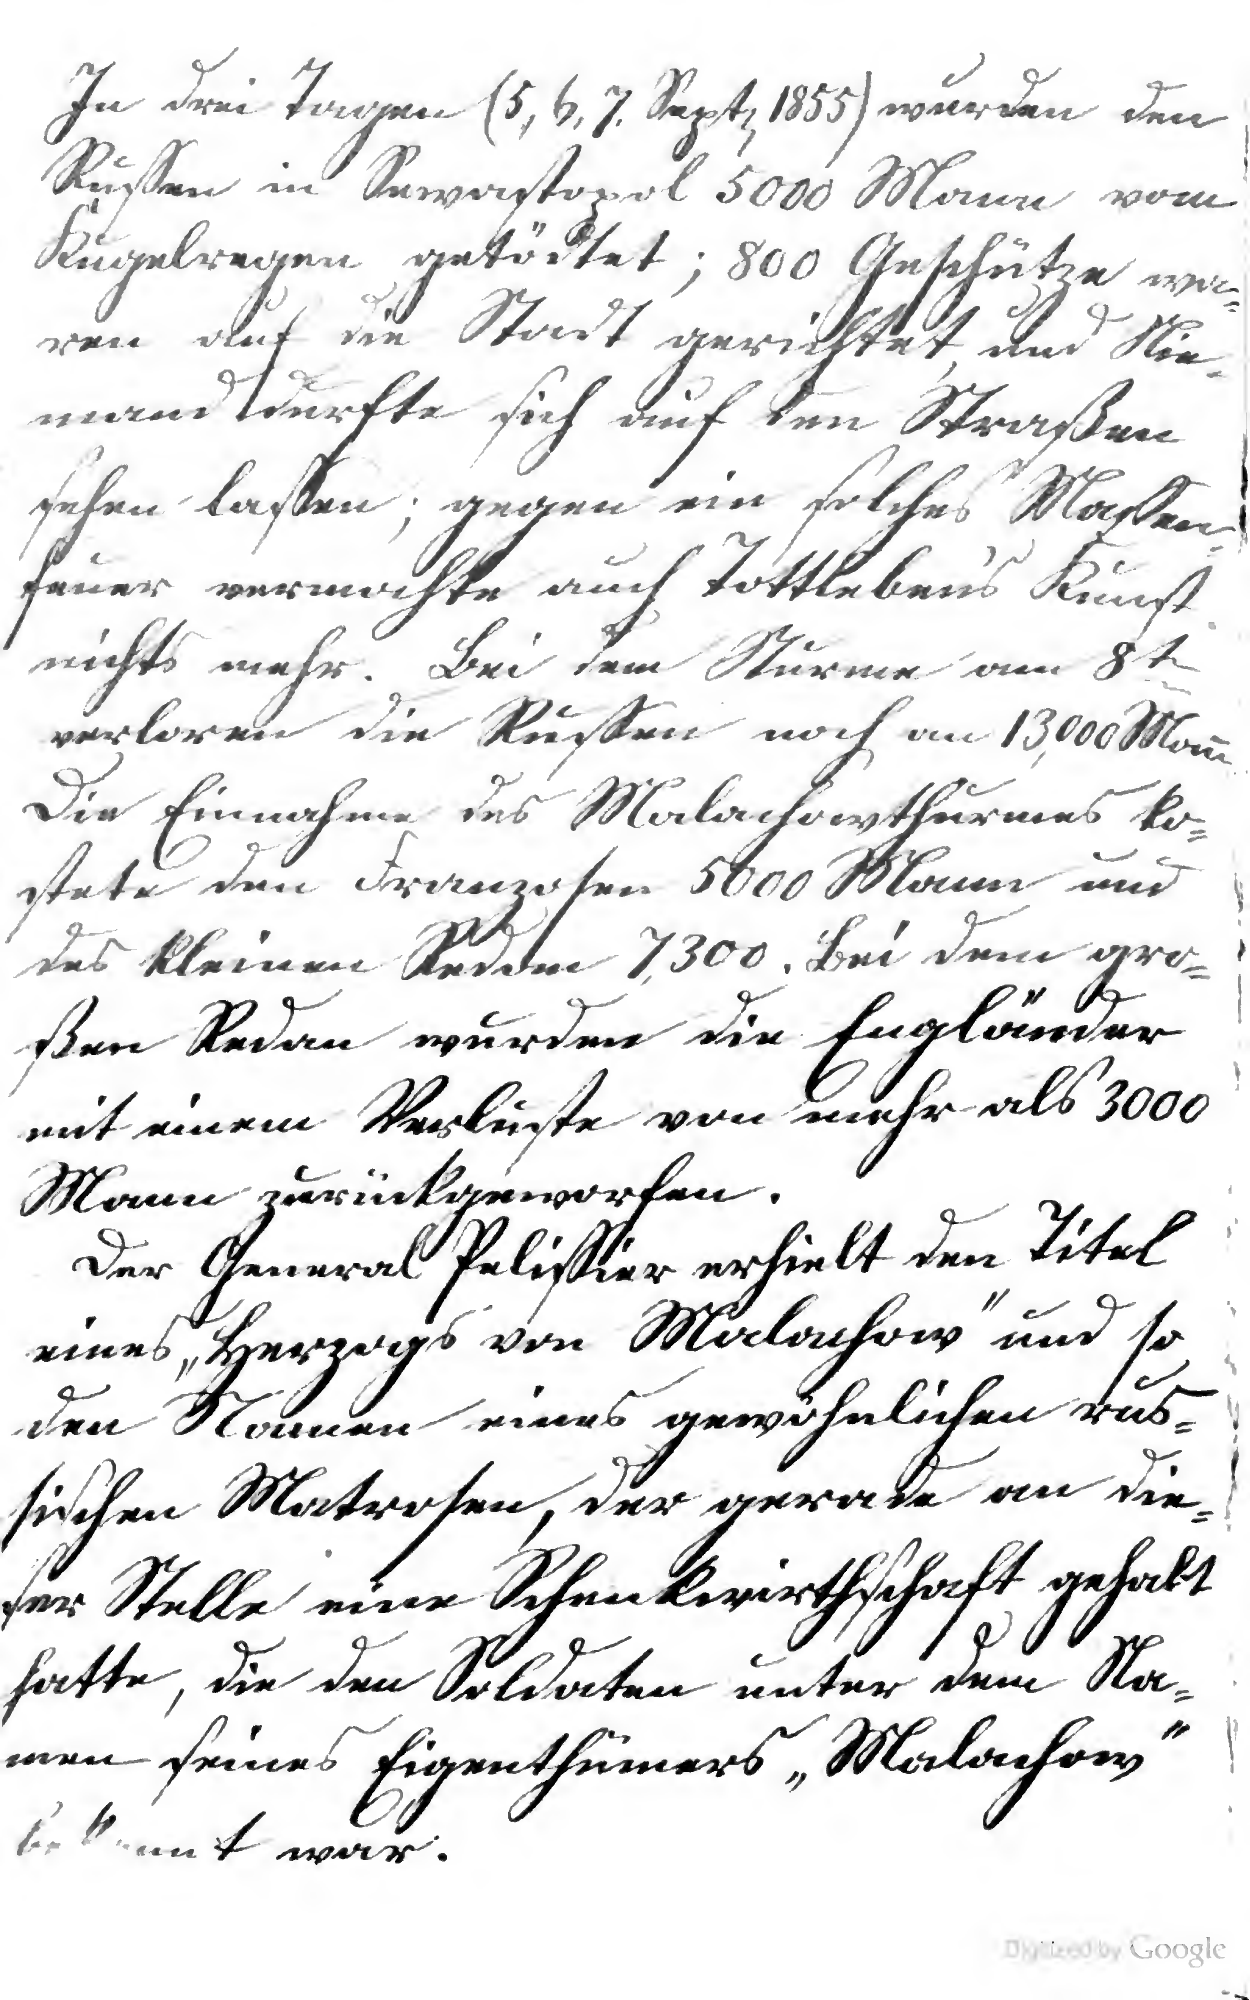 In drei Tagen (5, 6, 7. Sept, 1855) wurden den
Russen in Sewastopol 5000 Mann vom
Kugelregen getödtet; 800 Geschütze wa-
ren auf die Stadt gerichtet, und Nie-
mand durfte sich auf den Straßen
sehen lassen; gegen ein solches Massen-
feuer vermochte auch Tottleben's Kunst
nichts mehr. Bei dem Sturme am 8t
verloren die Russen noch an 13,000 Mann
Die Einnahme des Malachowthurmes ko-
stete den Franzosen 5000 Mann und
des kleinen Redan 7,300. Bei dem gro-
ßen Redan wurden die Engländer
mit einem Verluste von mehr als 3000
Mann zurückgeworfen.
Der General Pelissier erhielt den Titel
eines „Herzogs von Malachow" und so
den Namen eines gewöhnlichen rus-
sischen Matrosen, der gerade an die-
ser Stelle eine Schenkwirthschaft gehabt
hatte, die den Soldaten unter dem Na-
men seines Eigenthümers „Malachow"
bekannt war.
Digitized by Google